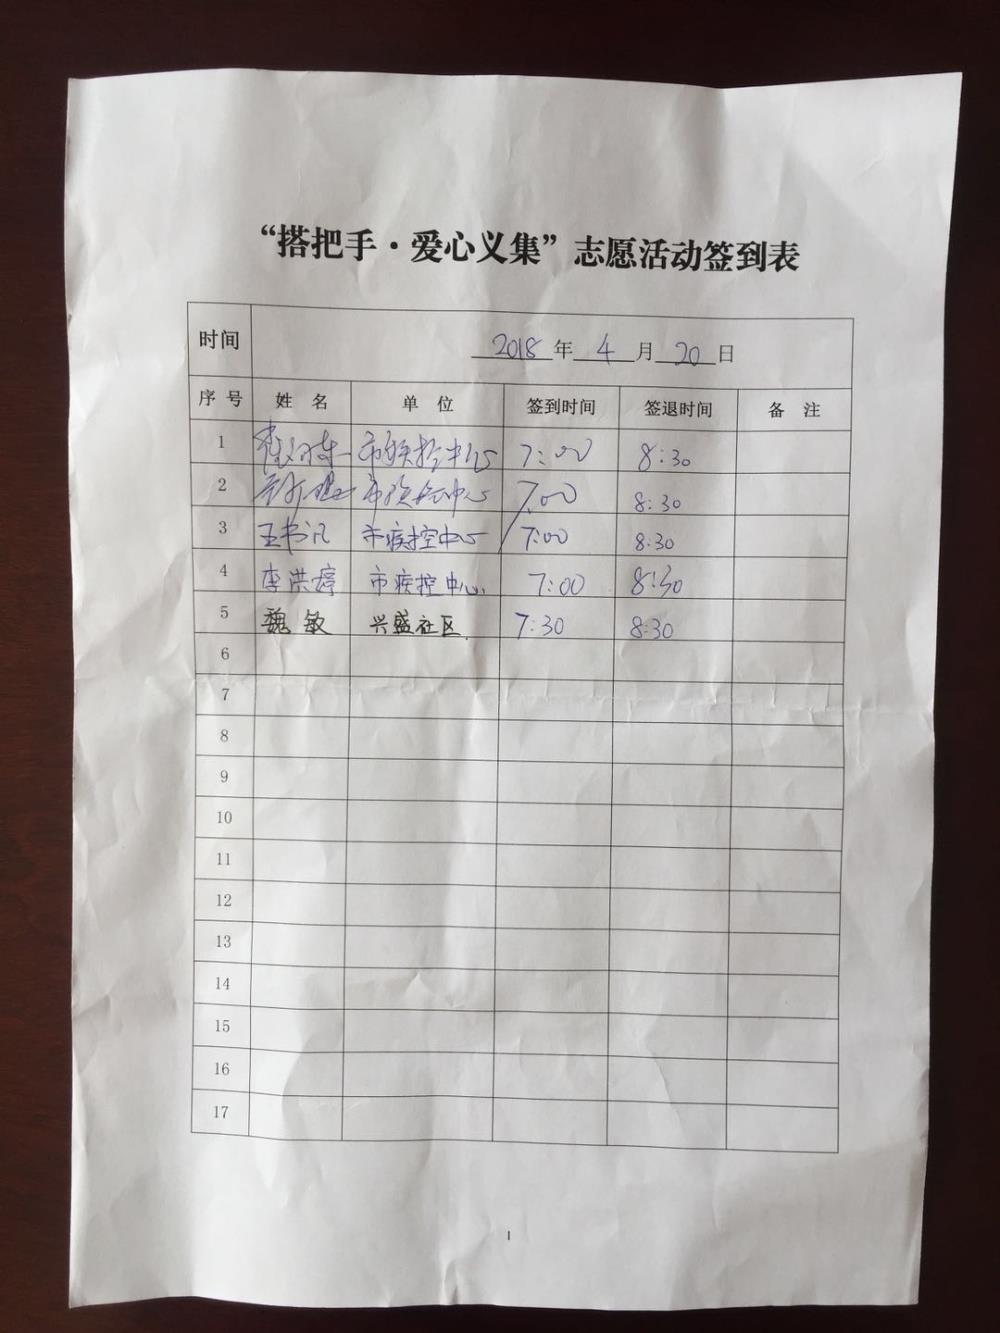 “搭把手·爱心义集”志愿活动签到表
时间 2018年4月20日
序号 姓名 单位 签到时间 签退时间 备注
1 市疾控中心 7:00 8:30
2 市疾控中心 7:00 8:30
3 王书汎 市疾控中心 7:00 8:30
4 李洪婷 市疾控中心 7:00 8:30
5 魏敏 兴盛社区 7:30 8:30
6
7
8
9
10
11
12
13
14
15
16
17
1